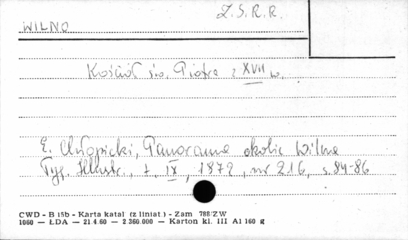 Z.S.R.R.
WILNO
Kościół św. Piotra z XVII w.
E. Chłopicki, Panorama okolic Wilna
Tyg. Illustr., t. IX, 1872, nr 216, s. 84-86
CWD - B 15b - Karta katal (z liniat.) - Zam 788/ZW
1050 — ŁDA — 21.4.60 — 2 360.000 — Karton kl. III A1 160 g